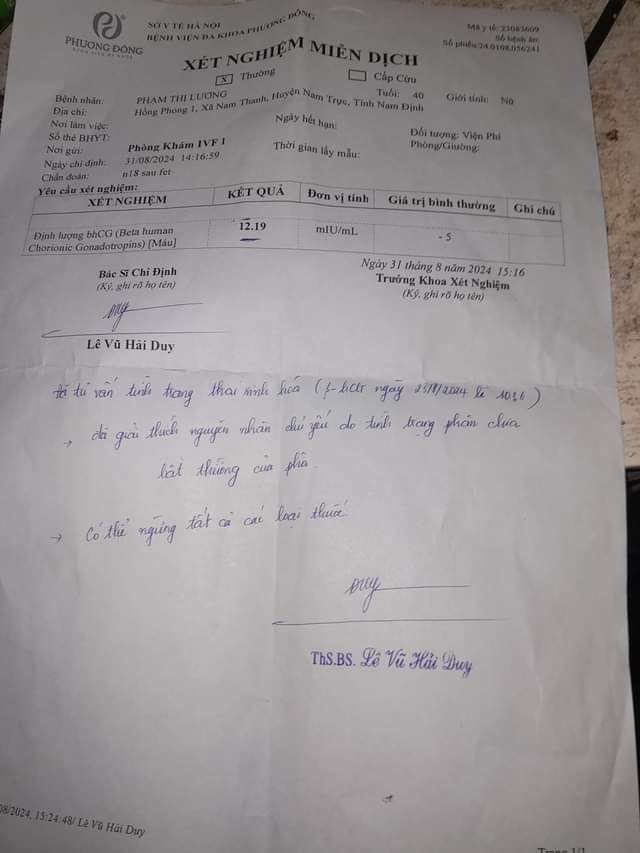 PHƯƠNG ĐÔNG
SỞ Y TẾ HÀ NỘI
BỆNH VIỆN ĐA KHOA PHƯƠNG ĐÔNG
Mã y tế: 23083609
Số bệnh án:
Số phiếu:24.0108.056241
XÉT NGHIỆM MIỄN DỊCH
X Thường Cấp Cứu
Bệnh nhân: PHẠM THỊ LƯƠNG Tuổi: 40 Giới tính: Nữ
Địa chỉ: Hồng Phong 1, Xã Nam Thanh, Huyện Nam Trực, Tỉnh Nam Định
Nơi làm việc:
Số thẻ BHYT: Ngày hết hạn: Đối tượng: Viện Phí
Nơi gửi: Phòng Khám IVF 1 Thời gian lấy mẫu: Phòng/Giường:
Ngày chỉ định: 31/08/2024 14:16:59
Chẩn đoán: n18 sau fet
Yêu cầu xét nghiệm:
XÉT NGHIỆM KẾT QUẢ Đơn vị tính Giá trị bình thường Ghi chú
Định lượng bhCG (Beta human Chorionic Gonadotropins) [Máu] 12.19 mIU/mL - 5
Ngày 31 tháng 8 năm 2024 15:16
Bác Sĩ Chỉ Định Trưởng Khoa Xét Nghiệm
(Ký, ghi rõ họ tên) (Ký, ghi rõ họ tên)
Duy
Lê Vũ Hải Duy
Đã tư vấn tình trạng thai sinh hóa ( β-hCG ngày
→ đã giải thích nguyên nhân chủ yếu do tình trạng phân chia
bất thường của phôi
→ Có thể ngừng tất cả các loại thuốc.
Duy
ThS.BS. Lê Vũ Hải Duy
08/2024, 15:24:48/ Lê Vũ Hải Duy
Trang 1/1